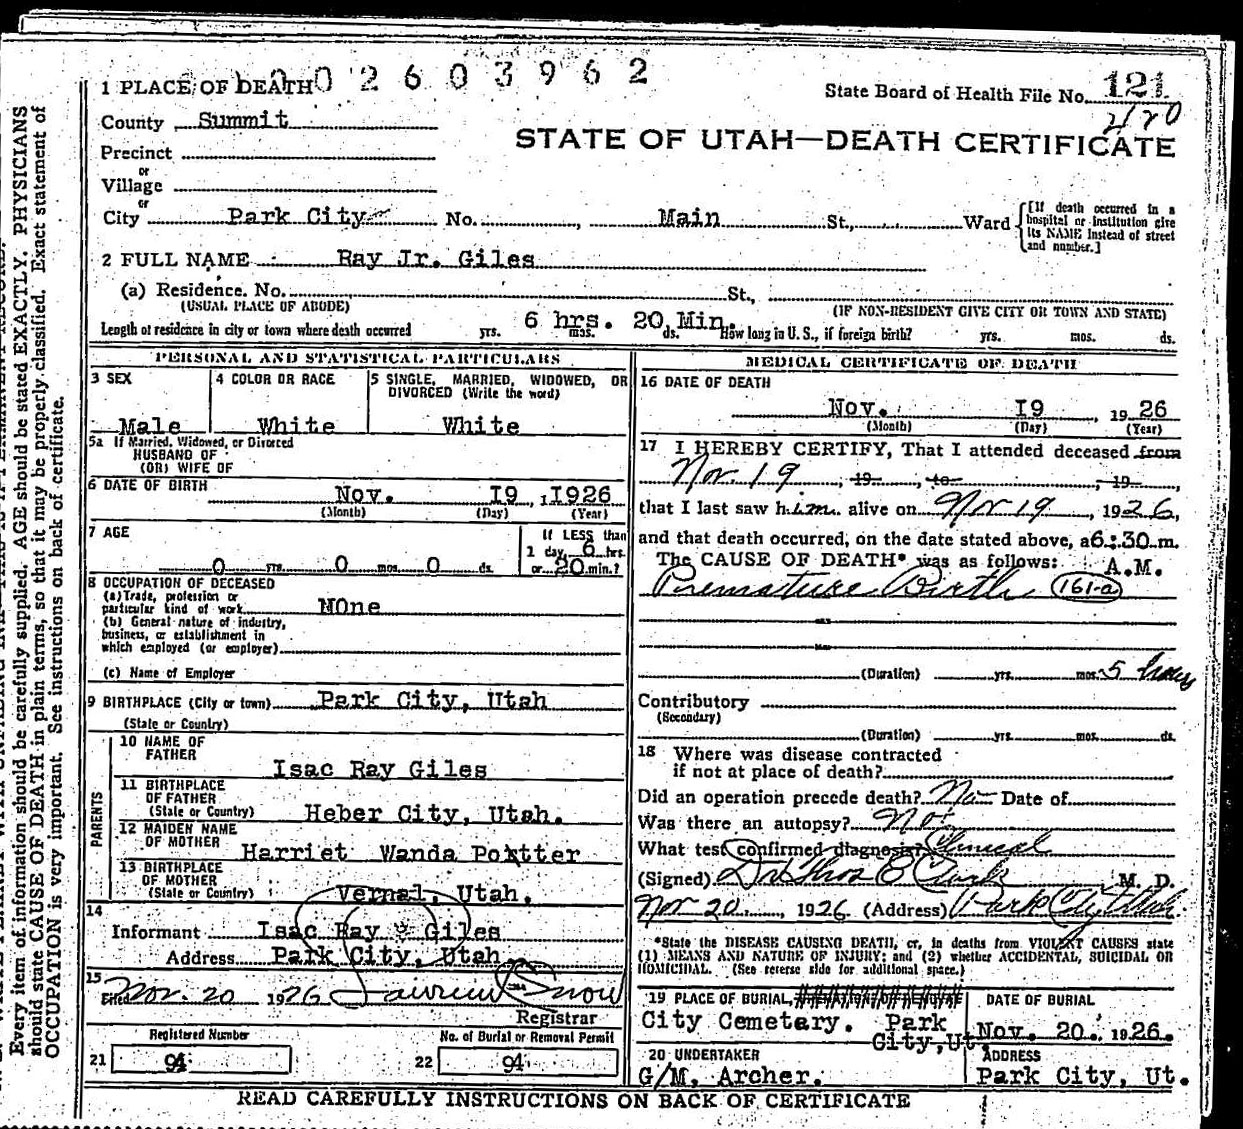 002603962
1 PLACE OF DEATH
State Board of Health File No. 121
420
County Summit
STATE OF UTAH—DEATH CERTIFICATE
Precinct
or
Village
or
City Park City No. , Main St., Ward
[If death occurred in a
hospital or institution give
its NAME instead of street
and number.]
2 FULL NAME Ray Jr. Giles
(a) Residence. No. St.,
(USUAL PLACE OF ABODE) (IF NON-RESIDENT GIVE CITY OR TOWN AND STATE)
Length of residence in city or town where death occurred yrs. 6 hrs. mos. 20 Min. ds. How long in U. S., if foreign birth? yrs. mos. ds.
PERSONAL AND STATISTICAL PARTICULARS
3 SEX
Male
4 COLOR OR RACE
White
5 SINGLE, MARRIED, WIDOWED, OR
DIVORCED (Write the word)
White
5a If Married, Widowed, or Divorced
HUSBAND OF
(OR) WIFE OF
6 DATE OF BIRTH
Nov. I9 , I926
(Month) (Day) (Year)
7 AGE
0 yrs. 0 mos. 0 ds.
If LESS than
1 day, 6 hrs.
or 20 min.?
8 OCCUPATION OF DECEASED
(a) Trade, profession or
particular kind of work NOne
(b) General nature of industry,
business, or establishment in
which employed (or employer)
(c) Name of Employer
9 BIRTHPLACE (City or town) Park City, Utah
(State or Country)
PARENTS
10 NAME OF
FATHER
Isac Ray Giles
11 BIRTHPLACE
OF FATHER
(State or Country) Heber City, Utah.
12 MAIDEN NAME
OF MOTHER
Harriet Wanda Potter
13 BIRTHPLACE
OF MOTHER
(State or Country) Vernal, Utah.
14
Informant Isac Ray Giles
Address Park City, Utah.
15
Filed Nov. 20 1926 Lawrence Snow
Registrar
Registered Number
21 94
No. of Burial or Removal Permit
22 94
MEDICAL CERTIFICATE OF DEATH
16 DATE OF DEATH
Nov. I9 , 1926
(Month) (Day) (Year)
17 I HEREBY CERTIFY, That I attended deceased from
Nov. 19, 19 , to , 19 ,
that I last saw him alive on Nov 19, 1926,
and that death occurred, on the date stated above, a6:30 m.
The CAUSE OF DEATH* was as follows: A.M.
Premature Birth 161-a
(Duration) yrs. mos. 5 hours
Contributory
(Secondary)
(Duration) yrs. mos. ds.
18 Where was disease contracted
if not at place of death?
Did an operation precede death? No Date of
Was there an autopsy? No.
What test confirmed diagnosis? Clinical
(Signed) Dr Thos E Clark M. D.
Nov 20, 1926 (Address) Park City Utah.
*State the DISEASE CAUSING DEATH, or, in deaths from VIOLENT CAUSES state
(1) MEANS AND NATURE OF INJURY; and (2) whether ACCIDENTAL, SUICIDAL OR
HOMICIDAL. (See reverse side for additional space.)
19 PLACE OF BURIAL,
City Cemetary. Park
City, Ut.
DATE OF BURIAL
Nov. 20. 1926.
20 UNDERTAKER
G/M. Archer.
ADDRESS
Park City, Ut.
READ CAREFULLY INSTRUCTIONS ON BACK OF CERTIFICATE
Every item of information should be carefully supplied. AGE should be stated EXACTLY. PHYSICIANS
should state CAUSE OF DEATH in plain terms, so that it may be properly classified. Exact statement of
OCCUPATION is very important. See instructions on back of certificate.